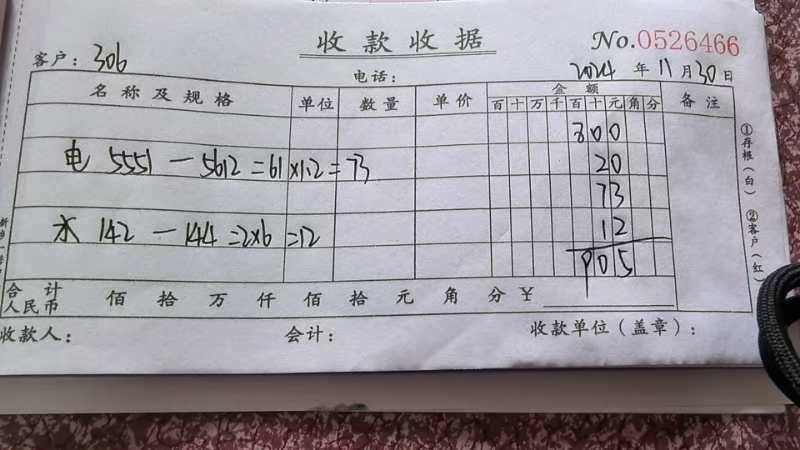 收款收据
No.0526466
客户：306
电话：
2024 年 11 月 30 日
名称及规格 单位 数量 单价 金额 备注
百 十 万 千 百 十 元 角 分
800
电 5551 — 5612 = 61 × 1.2 = 73 20
73
水 142 — 144 = 2×6 = 12 12
905
合计 人民币 佰 拾 万 仟 佰 拾 元 角 分 ¥
收款人： 会计： 收款单位（盖章）：
①存根（白）
②客户（红）